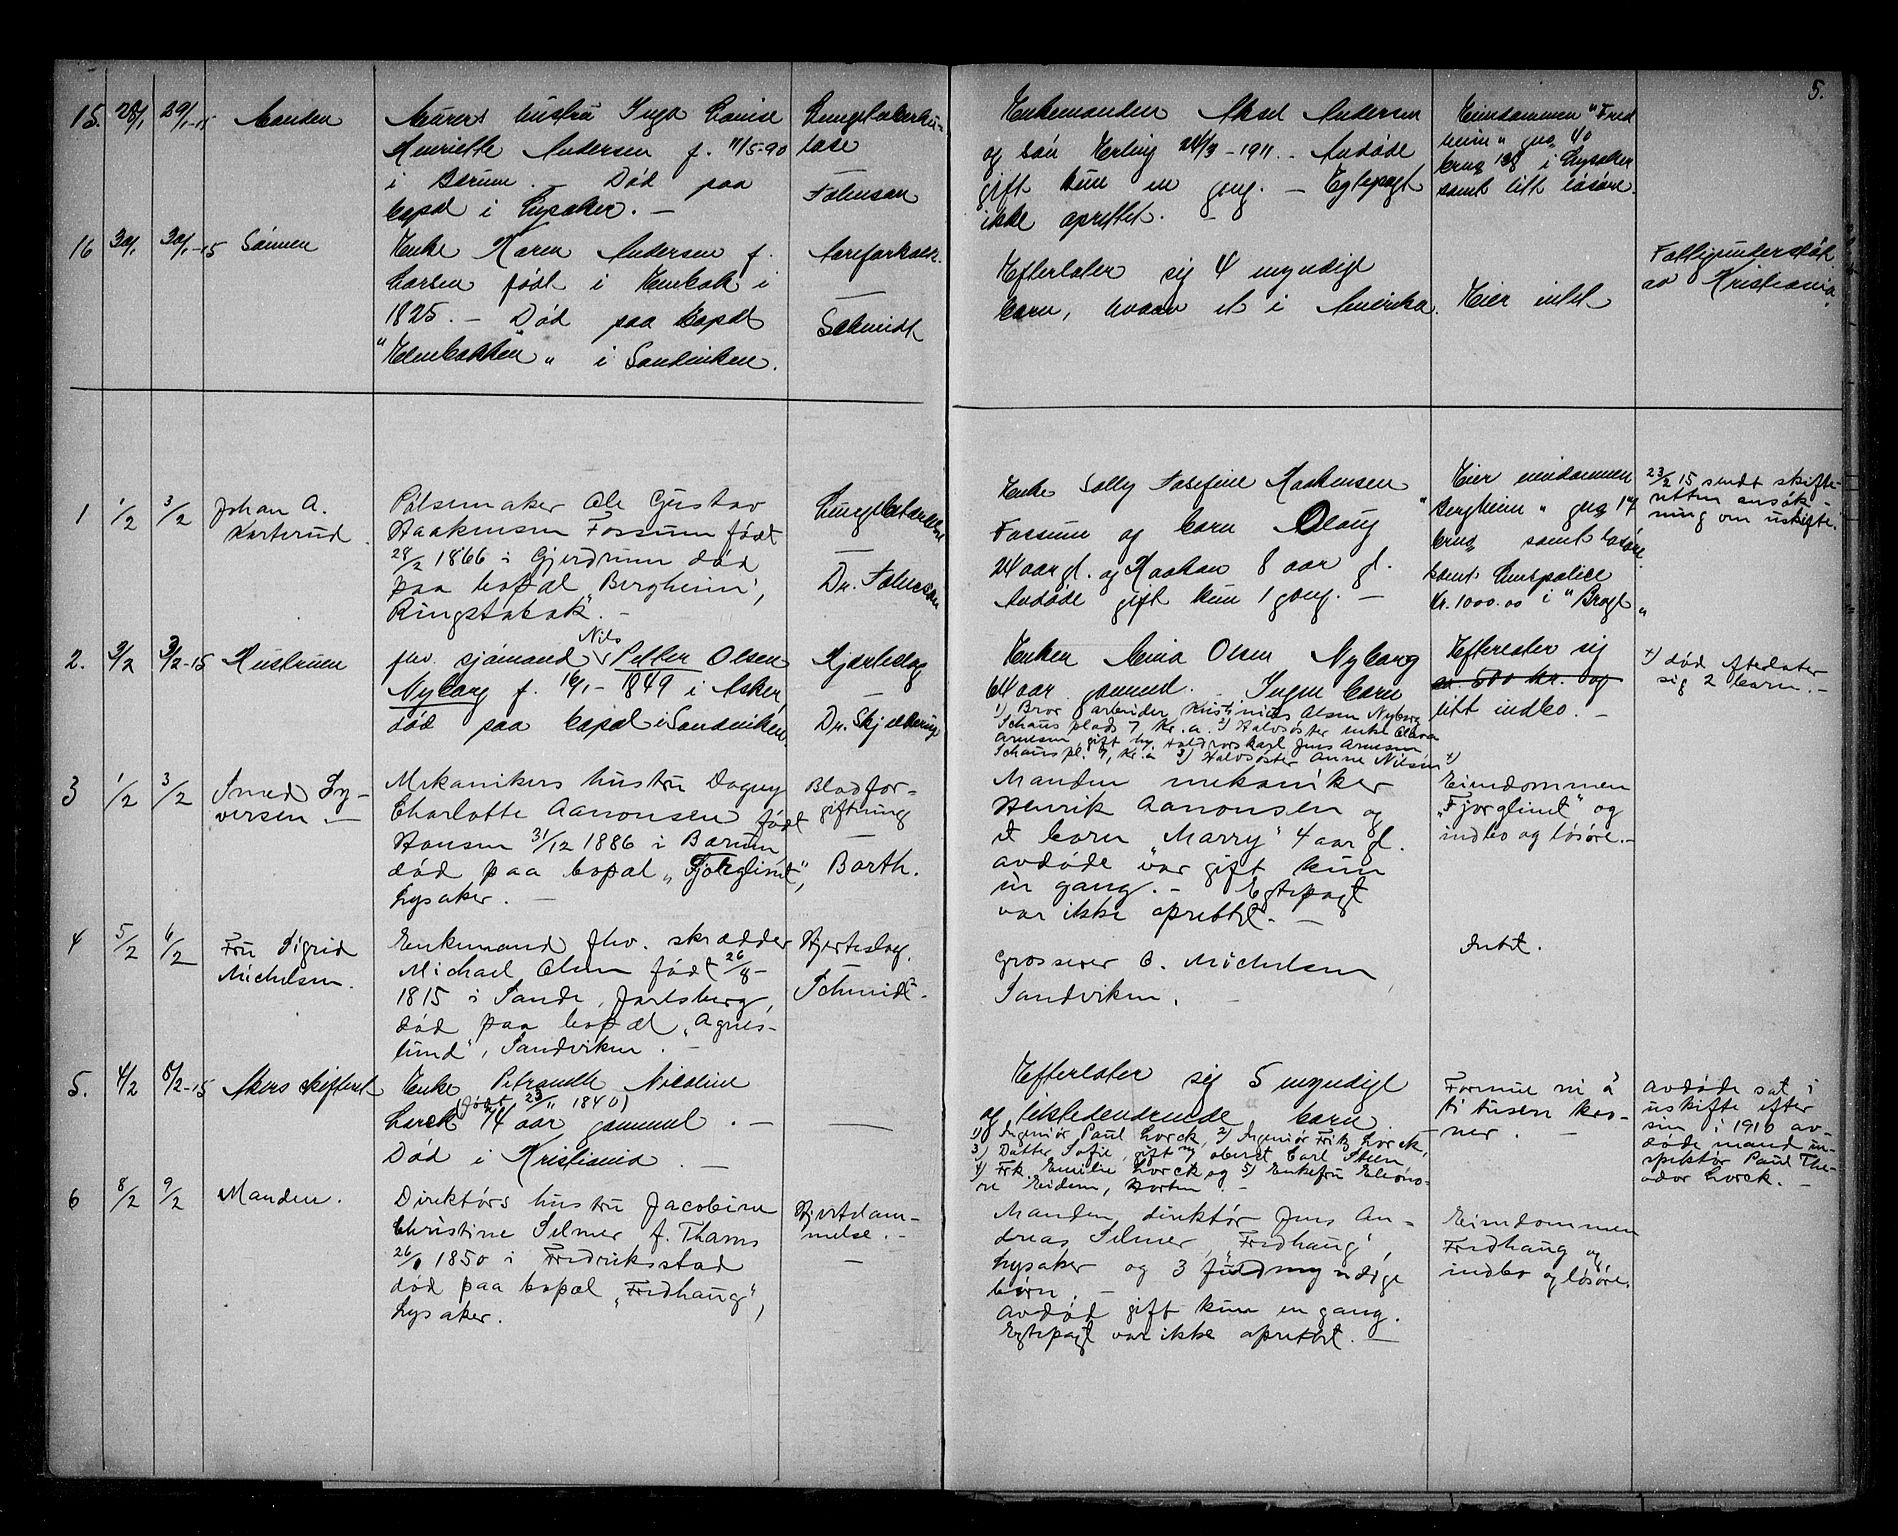 5.
15. 28/1 29/1-15 Manden
Murers hustru Inga Lovise
Henriette Andersen f. 11/5-90
i Bærum. – Død paa
bopæl i Lysaker. –
Lungetuberku-
lose
–
Johnson
Enkemanden Aksel Andersen
og søn Erling 24/3-1911. – Avdøde
gift kun en gang. – Egtepagt
ikke oprettet. –
Eiendommen "Fred
heim" gno 40
brno i Lysaker
samt litt løsøre.
16 30/1 30/1-15 Sønnen
Enke Karen Andersen f.
Larsen født i Enebak i
1825. – Død paa bopæl
"Elvebakken" i Sandviken.
Aareforkalk.
–
Schmidt
Efterlater sig 4 myndige
barn, hvorav et i Amerika.
Eier intet
Fattigunderstøt
av Kristiania.
1 1/2 3/2 Johan A.
Karterud.
Pølsemaker Ole Gustav
Haakensen Fossum født
28/2 1866 i Gjerdrum død
paa bopæl "Bergheim",
Ringstabæk. –
–
Dr. Johnson
Enke Solly Josefine Haakensen
Fossum og barn Olaug
24 aar gl. og Haakon 8 aar gl.
Avdøde gift kun 1 gang. –
Eier eiendommen
"Bergheim" gno 17
brno samt løsøre
samt livspolice
Kr. 1000.00 i "Brage"
23/2 15 sendt skifte-
retten ansøk-
ning om uskifte.
2. 3/2 3/2-15 Hustruen
fhv. sjømand Nils Petter Olsen
Nyborg f. 16/1-1849 i Asker,
død paa bopæl i Sandviken.
Hjerteslag
–
Dr. Skjelderup
Enken Mina Olsen Nyborg
64 aar gammel. Ingen barn
1) Bror arbeider Kristinius Olsen Nyborg
Schaus plads 7 Kr.a. 2) Halvsøster enke
Arnesen, gift m. Jens Arnesen
Schaus pl. 7, Kr.a 3) Halvsøster Anne Nilsen
Efterlater sig
ca 500 kr. og
litt indbo. –
+) død efterlater
sig 2 barn. –
3 1/2 3/2 Smed Sy-
versen. –
Mekanikers hustru Dagny
Charlotte Aanonsen født
Hansen 31/12 1886 i Bærum
død paa bopæl "Fjorglimt",
Lysaker. –
Blodfor-
giftning
–
Barth.
Manden mekaniker
Henrik Aanonsen og
et barn "Marry" 4 aar gl.
avdøde var gift kun
en gang. – Egtepagt
var ikke oprettet. –
Eiendommen
"Fjorglimt" og
indbo og løsøre. –
4 5/2 6/2 Fru Sigrid
Michelsen.
Enkemand fhv. skrædder
Michael Olsen født 26/8-
1815 i Sande, Jarlsberg,
død paa bopæl "Agnes-
lund", Sandviken. –
Hjerteslag.
Schmidt.
Grosserer C. Michelsen
Sandviken. –
Intet.
5. 4/2 5/2-15 Akers skifteret
Enke Petrandle Nicoline
(født 23/11 1840)
Lorck 74 aar gammel. –
Død i Kristiania –
–
Efterlater sig 5 myndige
og tilstedeværende barn.
1) Ingeniør Paul Lorck, 2) Ingeniør Fritz Lorck,
3) Datter Sofie, gift m/ oberst Carl Steen,
4) Frk. Emilie Lorck og 5) Enkefru Eleono-
re Eidem, Horten. –
Formue ni à
ti tusen kro-
ner. –
Avdøde sat i
uskifte efter
sin i 1910 av-
døde mand in-
spektør Paul The-
odor Lorck. –
6 8/2 9/2 Manden.
Direktørs hustru Jacobine
Christine Selmer f. Thams
1850 i Fredriksstad
død paa bopæl "Fredhaug",
Lysaker.
Hjertelam-
melse. –
–
Manden, direktør Jens An-
dreas Selmer, "Fredhaug",
Lysaker og 3 fuldmyndige
børn. –
Avdød gift kun en gang.
Egtepagt var ikke oprettet. –
Eiendommen
Fredhaug og
indbo og løsøre.